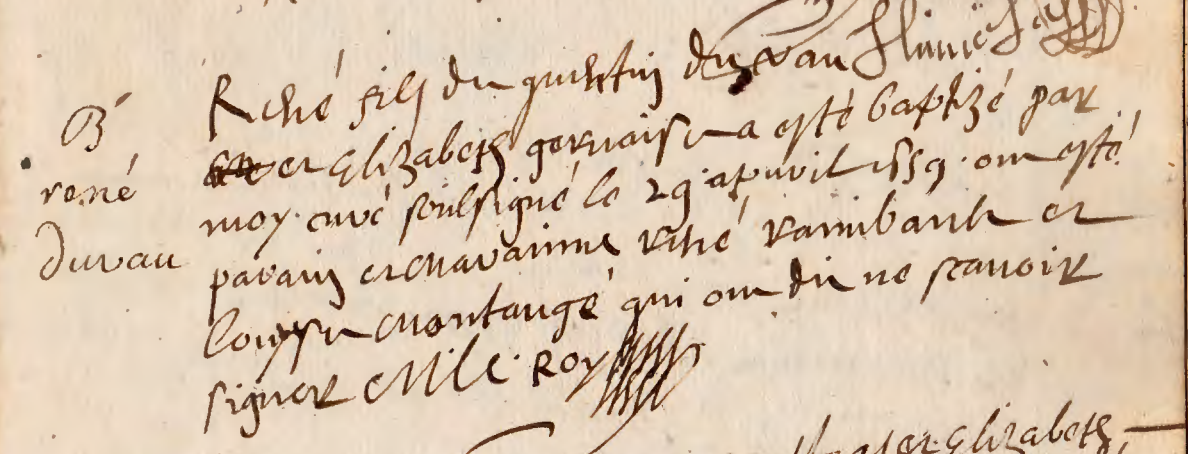 B
rené
duvau
René fils de quentin duvau
et Elizabeth gervaise a esté baptizé par
moy curé soubsigné le 29 apuril 1659 ont esté
parain et maraine rené raimbault et
louyse montaugé qui ont dit ne scauoir
signer M Le Roy
Elizabeth